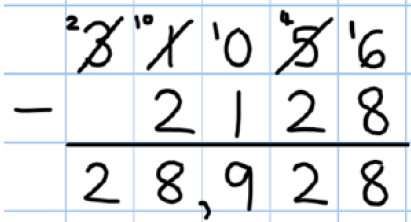 2 3 10 1 1 0 4 5 1 6
− 2 1 2 8
2 8 , 9 2 8